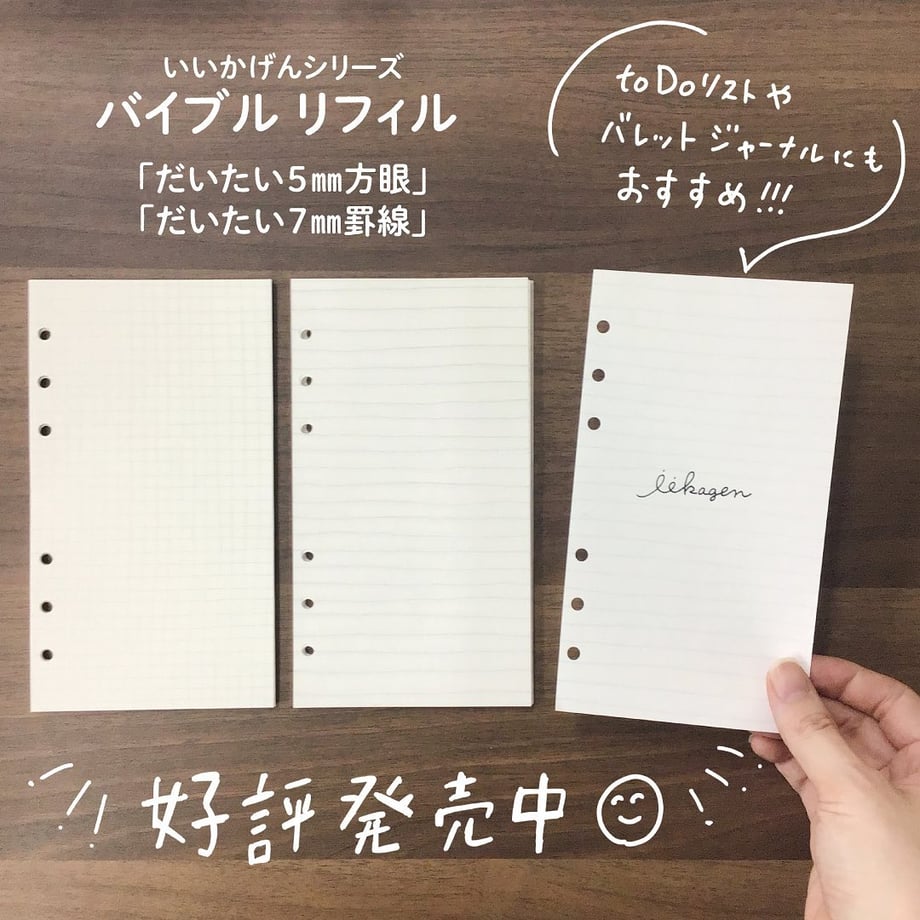 いいかげんシリーズ
バイブル リフィル
「だいたい5㎜方眼」
「だいたい7㎜罫線」
toDoリストや
バレットジャーナルにも
おすすめ!!!
iikagen
好評発売中